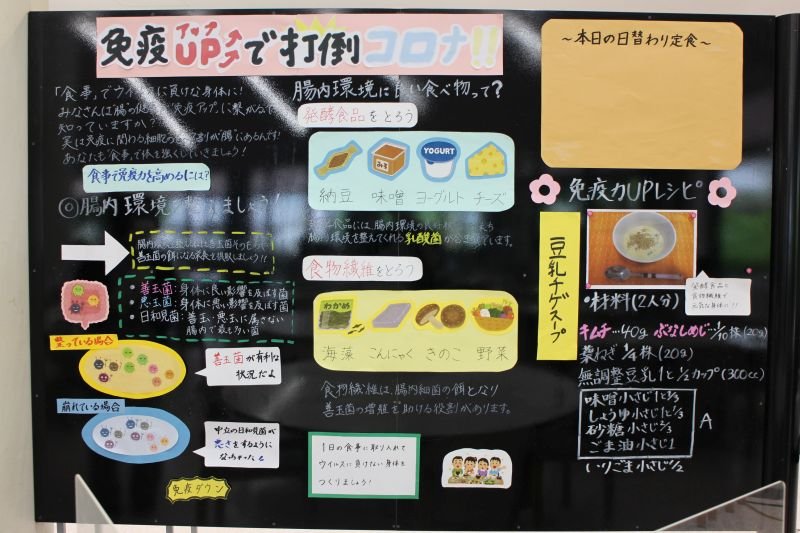 免疫UPで打倒コロナ!!
「食事」でウイルスに負けない身体に!
みなさんは腸の健康が免疫アップに繋がるって
知っていますか?
実は免疫に関わる細胞の7割が"腸"にあるんです!
あなたも"食事"で体を強くしていきましょう!
食事で免疫力を高めるには?
◎腸内環境を整えましょう!
善玉菌の餌になる栄養を摂取しましょう!!
・善玉菌:身体に良い影響を及ぼす菌
・悪玉菌:身体に悪い影響を及ぼす菌
・日和見菌:善玉、悪玉に属さない
腸内で最も多い菌
整っている場合
善玉菌が有利な
状況だよ
崩れている場合
中立の日和見菌が
悪さをするように
なっちゃった
免疫ダウン
腸内環境に良い食べ物って?
発酵食品をとろう
みそ
YOGURT
納豆 味噌 ヨーグルト チーズ
腸内環境を整えてくれる乳酸菌が含まれています。
食物繊維をとろう
わかめ
海藻 こんにゃく きのこ 野菜
食物繊維は、腸内細菌の餌となり
善玉菌の増殖を助ける役割があります。
1日の食事に取り入れて
ウイルスに負けない身体を
つくりましょう!
〜本日の日替わり定食〜
免疫力UPレシピ
豆乳チゲスープ
発酵食品と
食物繊維で
元気な身体に!!
・材料(2人分)
キムチ…40g ぶなしめじ…1/10株(20g)
葉ねぎ 1/4株(20g)
無調整豆乳1と1/2カップ(300cc)
味噌小さじ1と1/3
しょうゆ小さじ2/3
砂糖小さじ2/3
ごま油小さじ1
A
いりごま小さじ1/2